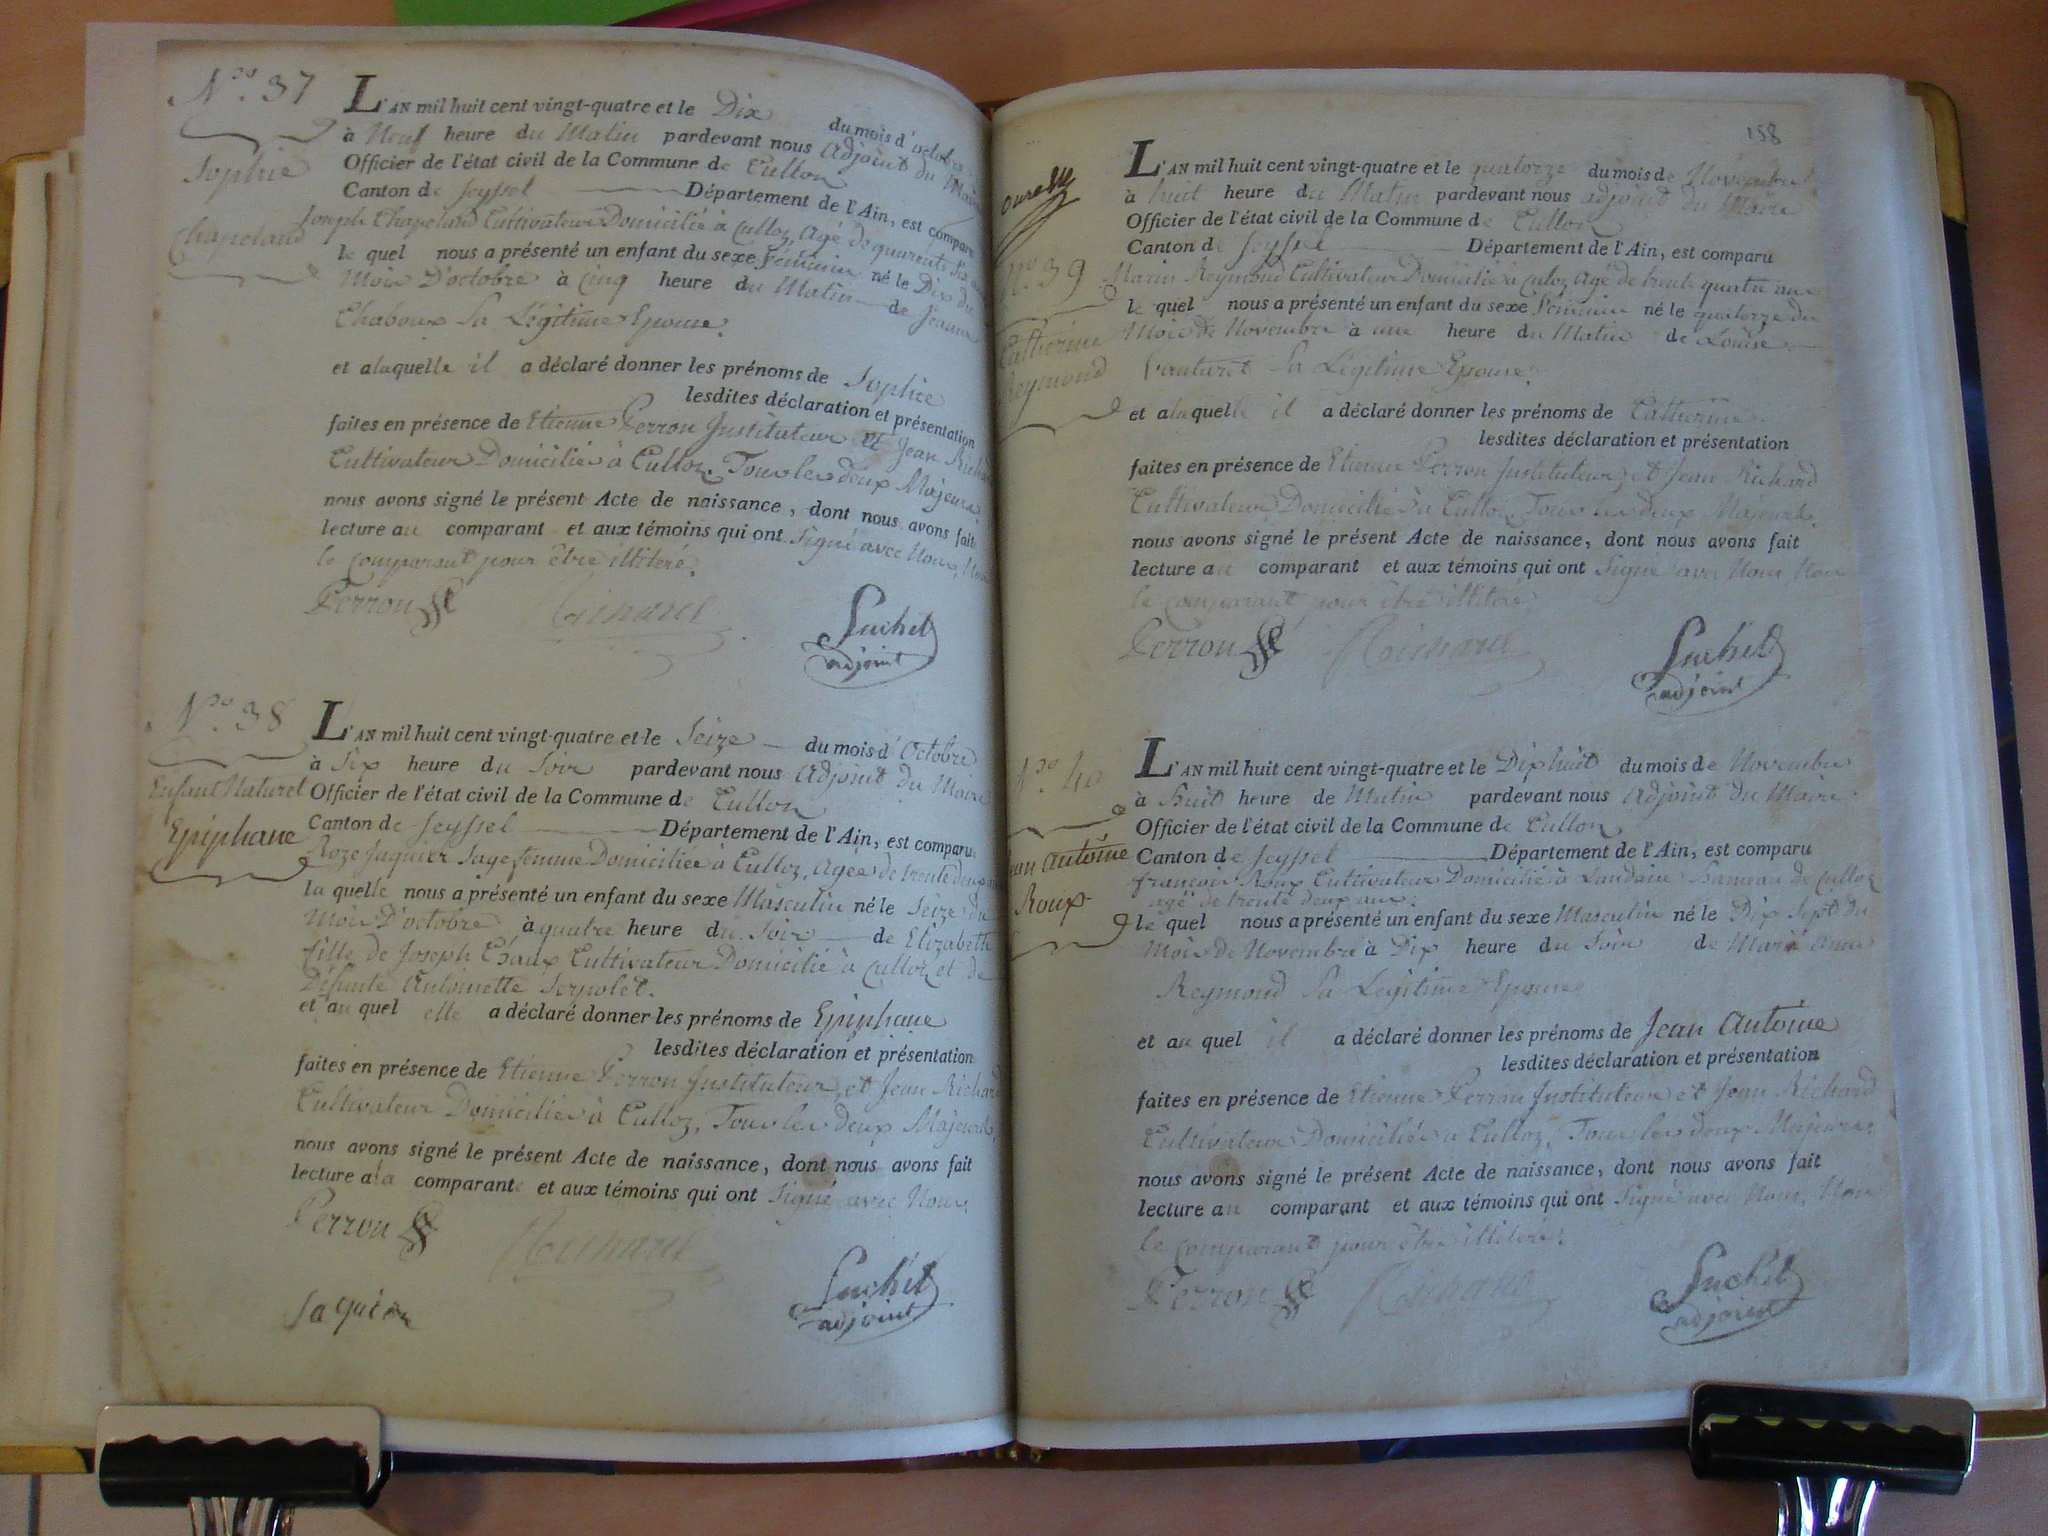 N.ro 37
Sophie
Chapeland
L'AN mil huit cent vingt-quatre et le Dix du mois d'octobre
à Neuf heure du Matin pardevant nous Adjoint du Maire
Officier de l'état civil de la Commune de Culloz
Canton de Seyssel Département de l'Ain, est comparu
Joseph Chapeland Cultivateur Domicilié à Culloz, Agé de quarente six ans
le quel nous a présenté un enfant du sexe féminin né le Dix du
Mois D'octobre à Cinq heure du Matin de Jeanne
Chaboux Sa Légitime Epouse.
et alaquelle il a déclaré donner les prénoms de Sophie
lesdites déclaration et présentation
faites en présence de Etienne Perron Instituteur et Jean Richard
Cultivateur Domiciliés à Culloz. Tous les deux Majeurs.
nous avons signé le présent Acte de naissance, dont nous avons fait
lecture au comparant et aux témoins qui ont Signé avec Nous, Non
le comparant pour être illiteré.
Perron Richard Suchet
adjoint
N.ro 38
Enfant Naturel
Epiphane
L'AN mil huit cent vingt-quatre et le Seize du mois d'Octobre
à Six heure du Soir pardevant nous Adjoint du Maire
Officier de l'état civil de la Commune de Culloz
Canton de Seyssel Département de l'Ain, est comparu
Roze Jaquier Sage femme Domiciliée à Culloz, Agée de trente deux ans
la quelle nous a présenté un enfant du sexe Masculin né le Seize du
Mois D'octobre à quatre heure du Soir de Elizabeth
fille de Joseph Chaux Cultivateur Domicilié à Culloz et de
Défunte Antoinette Serpolet.
et au quel elle a déclaré donner les prénoms de Epiphane
lesdites déclaration et présentation
faites en présence de Etienne Perron Instituteur, et Jean Richard
Cultivateur Domiciliés à Culloz, Tous les deux Majeurs,
nous avons signé le présent Acte de naissance, dont nous avons fait
lecture a la comparante et aux témoins qui ont Signé avec Nous.
Perron Richard Suchet
adjoint
158
N.ro 39
Catherine
Reymond
L'AN mil huit cent vingt-quatre et le quatorze du mois de Novembre
à huit heure du Matin pardevant nous adjoint du Maire
Officier de l'état civil de la Commune de Culloz
Canton de Seyssel Département de l'Ain, est comparu
Marin Reymond Cultivateur Domicilié à Culoz Agé de trente quatre ans
le quel nous a présenté un enfant du sexe Féminin né le quatorze du
Mois de Novembre à une heure du Matin de Louise
Sa Légitime Epouse.
et alaquelle il a déclaré donner les prénoms de Catherine
lesdites déclaration et présentation
faites en présence de Etienne Perron Instituteur, et Jean Richard
Cultivateur Domiciliés à Culloz, Tous les deux Majeurs,
nous avons signé le présent Acte de naissance, dont nous avons fait
lecture au comparant et aux témoins qui ont Signé avec Nous Non
le comparant pour être illiteré
Perron Richard Suchet
adjoint
N.ro 40
Jean Antoine
Roux
L'AN mil huit cent vingt-quatre et le Dix huit du mois de Novembre
à Huit heure de Matin pardevant nous Adjoint du Maire
Officier de l'état civil de la Commune de Culloz
Canton de Seyssel Département de l'Ain, est comparu
françois Roux Cultivateur Domicilié à Landaise Hameau de Culloz
agé de trente deux ans.
le quel nous a présenté un enfant du sexe Masculin né le Dix Sept du
Mois de Novembre à Dix heure du Soir de Marie Anne
Reymond Sa Légitime Epouse
et au quel il a déclaré donner les prénoms de Jean Antoine
lesdites déclaration et présentation
faites en présence de Etienne Perron Instituteur et Jean Richard
Cultivateur Domiciliés à Culloz, Tous les deux Majeurs.
nous avons signé le présent Acte de naissance, dont nous avons fait
lecture au comparant et aux témoins qui ont Signé avec Nous, Non
le comparant pour être illiteré.
Perron Richard Suchet
adjoint